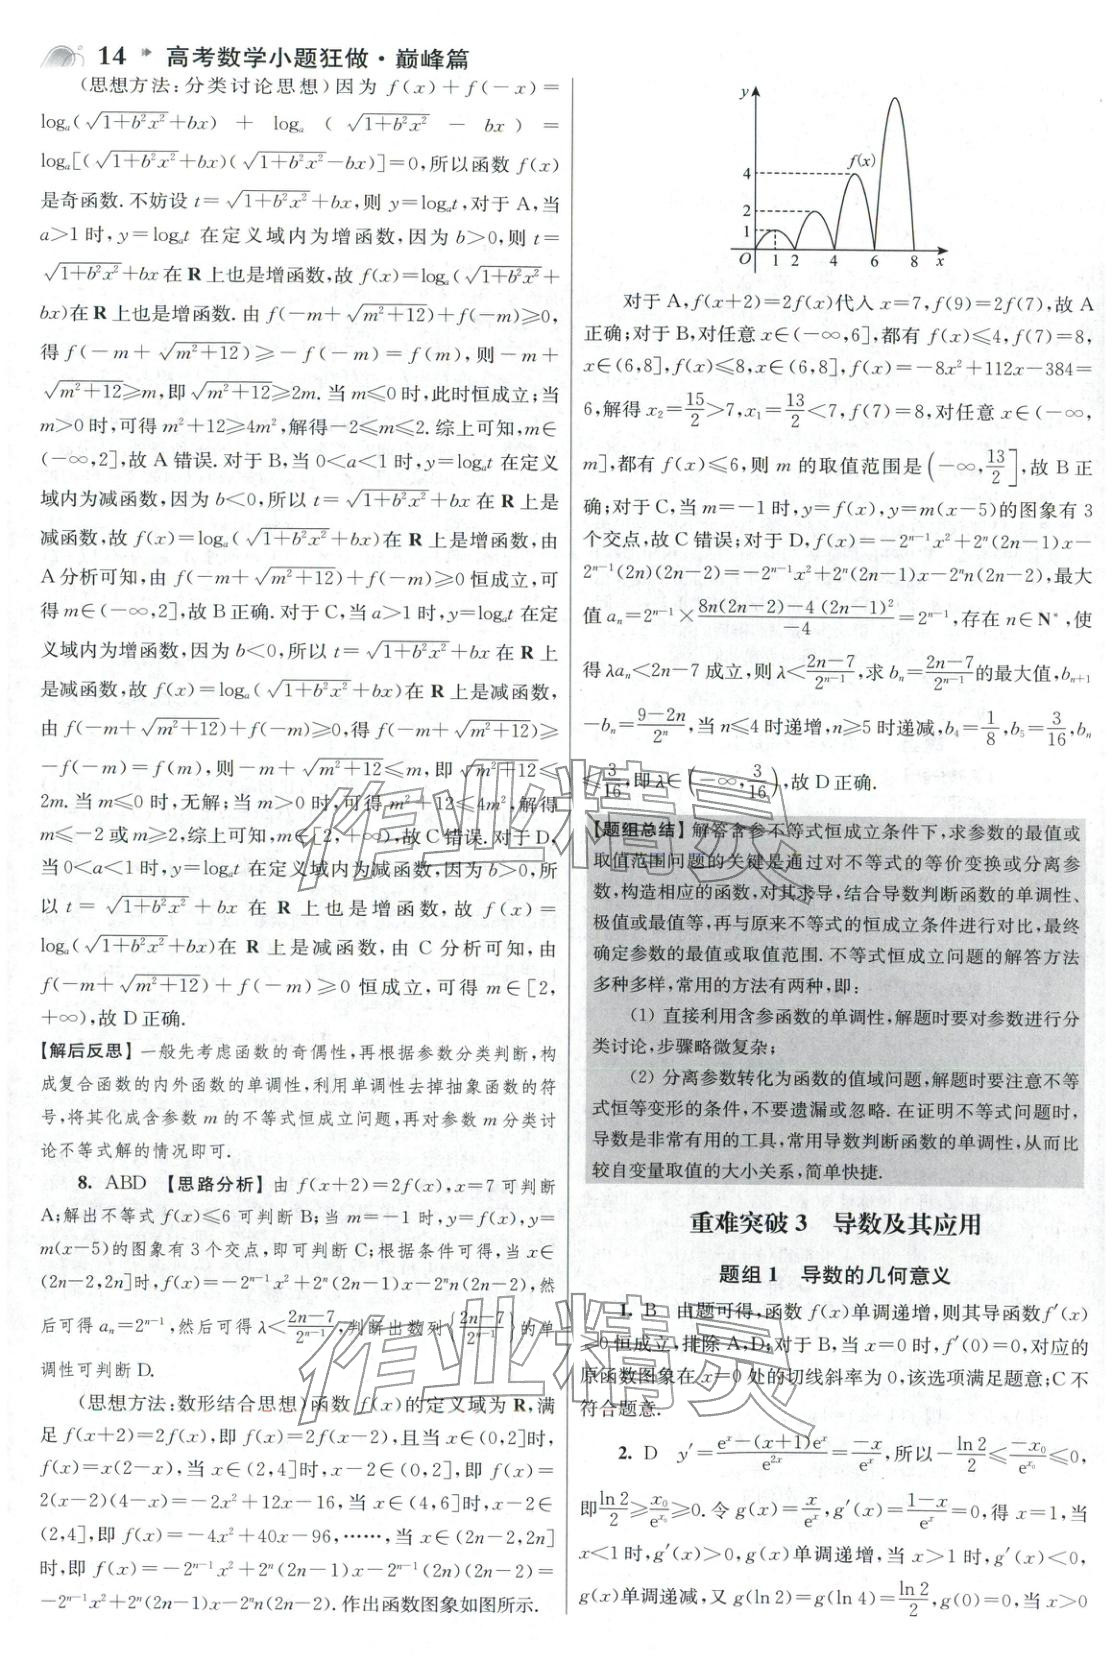 14 高考数学小题狂做·巅峰篇
(思想方法:分类讨论思想)因为 f(x)+f(-x)=
logₐ(√(1+b²x²)+bx) + logₐ (√(1+b²x²) - bx) =
logₐ[(√(1+b²x²)+bx)(√(1+b²x²)-bx)]=0,所以函数 f(x)
是奇函数.不妨设 t=√(1+b²x²)+bx,则 y=logₐt,对于 A,当
a>1 时,y=logₐt 在定义域内为增函数,因为 b>0,则 t=
√(1+b²x²)+bx 在 R 上也是增函数,故 f(x)=logₐ(√(1+b²x²)+
bx)在 R 上也是增函数.由 f(-m+√(m²+12))+f(-m)≥0,
得 f(-m+√(m²+12))≥-f(-m)=f(m),则-m+
√(m²+12)≥m,即√(m²+12)≥2m.当 m≤0 时,此时恒成立;当
m>0 时,可得 m²+12≥4m²,解得-2≤m≤2.综上可知,m∈
(-∞,2],故 A 错误.对于 B,当 0<a<1 时,y=logₐt 在定义
域内为减函数,因为 b<0,所以 t=√(1+b²x²)+bx 在 R 上是
减函数,故 f(x)=logₐ(√(1+b²x²)+bx)在 R 上是增函数,由
A 分析可知,由 f(-m+√(m²+12))+f(-m)≥0 恒成立,可
得 m∈(-∞,2],故 B 正确.对于 C,当 a>1 时,y=logₐt 在定
义域内为增函数,因为 b<0,所以 t=√(1+b²x²)+bx 在 R 上
是减函数,故 f(x)=logₐ(√(1+b²x²)+bx)在 R 上是减函数,
由 f(-m+√(m²+12))+f(-m)≥0,得 f(-m+√(m²+12))≥
-f(-m)=f(m),则-m+√(m²+12)≤m,即√(m²+12)≤
2m.当 m≤0 时,无解;当 m>0 时,可得 m²+12≤4m²,解得
m≤-2 或 m≥2,综上可知,m∈[2,+∞),故 C 错误.对于 D,
当 0<a<1 时,y=logₐt 在定义域内为减函数,因为 b>0,所
以 t=√(1+b²x²)+bx 在 R 上也是增函数,故 f(x)=
logₐ(√(1+b²x²)+bx)在 R 上是减函数,由 C 分析可知,由
f(-m+√(m²+12))+f(-m)≥0 恒成立,可得 m∈[2,
+∞),故 D 正确.
【解后反思】一般先考虑函数的奇偶性,再根据参数分类判断,构
成复合函数的内外函数的单调性,利用单调性去掉抽象函数的符
号,将其化成含参数 m 的不等式恒成立问题,再对参数 m 分类讨
论不等式解的情况即可.
8. ABD 【思路分析】由 f(x+2)=2f(x),x=7 可判断
A;解出不等式 f(x)≤6 可判断 B;当 m=-1 时,y=f(x),y=
m(x-5)的图象有 3 个交点,即可判断 C;根据条件可得,当 x∈
(2n-2,2n]时,f(x)=-2ⁿ⁻¹x²+2ⁿ(2n-1)x-2ⁿn(2n-2),然
后可得 aₙ=2ⁿ⁻¹,然后可得 λ<(2n-7)/2ⁿ⁻¹,判断出数列{(2n-7)/2ⁿ⁻¹}的单
调性可判断 D.
(思想方法:数形结合思想)函数 f(x)的定义域为 R,满
足 f(x+2)=2f(x),即 f(x)=2f(x-2),且当 x∈(0,2]时,
f(x)=x(2-x),当 x∈(2,4]时,x-2∈(0,2],即 f(x)=
2(x-2)(4-x)=-2x²+12x-16,当 x∈(4,6]时,x-2∈
(2,4],即 f(x)=-4x²+40x-96,……,当 x∈(2n-2,2n]
时,即 f(x)=-2ⁿ⁻¹x²+2ⁿ(2n-1)x-2ⁿ⁻¹(2n)(2n-2)=
-2ⁿ⁻¹x²+2ⁿ(2n-1)x-2ⁿn(2n-2).作出函数图象如图所示.
y
f(x)
4
2
1
O 1 2 4 6 8 x
对于 A,f(x+2)=2f(x)代入 x=7,f(9)=2f(7),故 A
正确;对于 B,对任意 x∈(-∞,6],都有 f(x)≤4,f(7)=8,
x∈(6,8],f(x)≤8,x∈(6,8],f(x)=-8x²+112x-384=
6,解得 x₂=15/2>7,x₁=13/2<7,f(7)=8,对任意 x∈(-∞,
m],都有 f(x)≤6,则 m 的取值范围是(-∞,13/2],故 B 正
确;对于 C,当 m=-1 时,y=f(x),y=m(x-5)的图象有 3
个交点,故 C 错误;对于 D,f(x)=-2ⁿ⁻¹x²+2ⁿ(2n-1)x-
2ⁿ⁻¹(2n)(2n-2)=-2ⁿ⁻¹x²+2ⁿ(2n-1)x-2ⁿn(2n-2),最大
值 aₙ=2ⁿ⁻¹×(8n(2n-2)-4(2n-1)²)/(-4)=2ⁿ⁻¹,存在 n∈N*,使
得 λaₙ<2n-7 成立,则 λ<(2n-7)/2ⁿ⁻¹,求 bₙ=(2n-7)/2ⁿ⁻¹的最大值,bₙ₊₁
-bₙ=(9-2n)/2ⁿ,当 n≤4 时递增,n≥5 时递减,b₄=1/8,b₅=3/16,bₙ
≤3/16,即 λ∈(-∞,3/16),故 D 正确.
【题组总结】解答含参不等式恒成立条件下,求参数的最值或
取值范围问题的关键是通过对不等式的等价变换或分离参
数,构造相应的函数,对其求导,结合导数判断函数的单调性、
极值或最值等,再与原来不等式的恒成立条件进行对比,最终
确定参数的最值或取值范围.不等式恒成立问题的解答方法
多种多样,常用的方法有两种,即:
(1) 直接利用含参函数的单调性,解题时要对参数进行分
类讨论,步骤略微复杂;
(2) 分离参数转化为函数的值域问题,解题时要注意不等
式恒等变形的条件,不要遗漏或忽略.在证明不等式问题时,
导数是非常有用的工具,常用导数判断函数的单调性,从而比
较自变量取值的大小关系,简单快捷.
重难突破 3 导数及其应用
题组 1 导数的几何意义
1. B 由题可得,函数 f(x)单调递增,则其导函数 f′(x)
≥0恒成立,排除 A,D;对于 B,当 x=0 时,f′(0)=0,对应的
原函数图象在 x=0 处的切线斜率为 0,该选项满足题意;C 不
符合题意.
2. D y′=(eˣ-(x+1)eˣ)/e²ˣ=-x/eˣ,所以-ln2/2≤-x₀/eˣ⁰≤0,
即ln2/2≥x₀/eˣ⁰≥0.令 g(x)=x/eˣ,g′(x)=(1-x)/eˣ=0,得 x=1,当
x<1 时,g′(x)>0,g(x)单调递增,当 x>1 时,g′(x)<0,
g(x)单调递减,又 g(ln 2)=g(ln 4)=ln2/2,g(0)=0,当 x>0
作业精灵
作业精灵